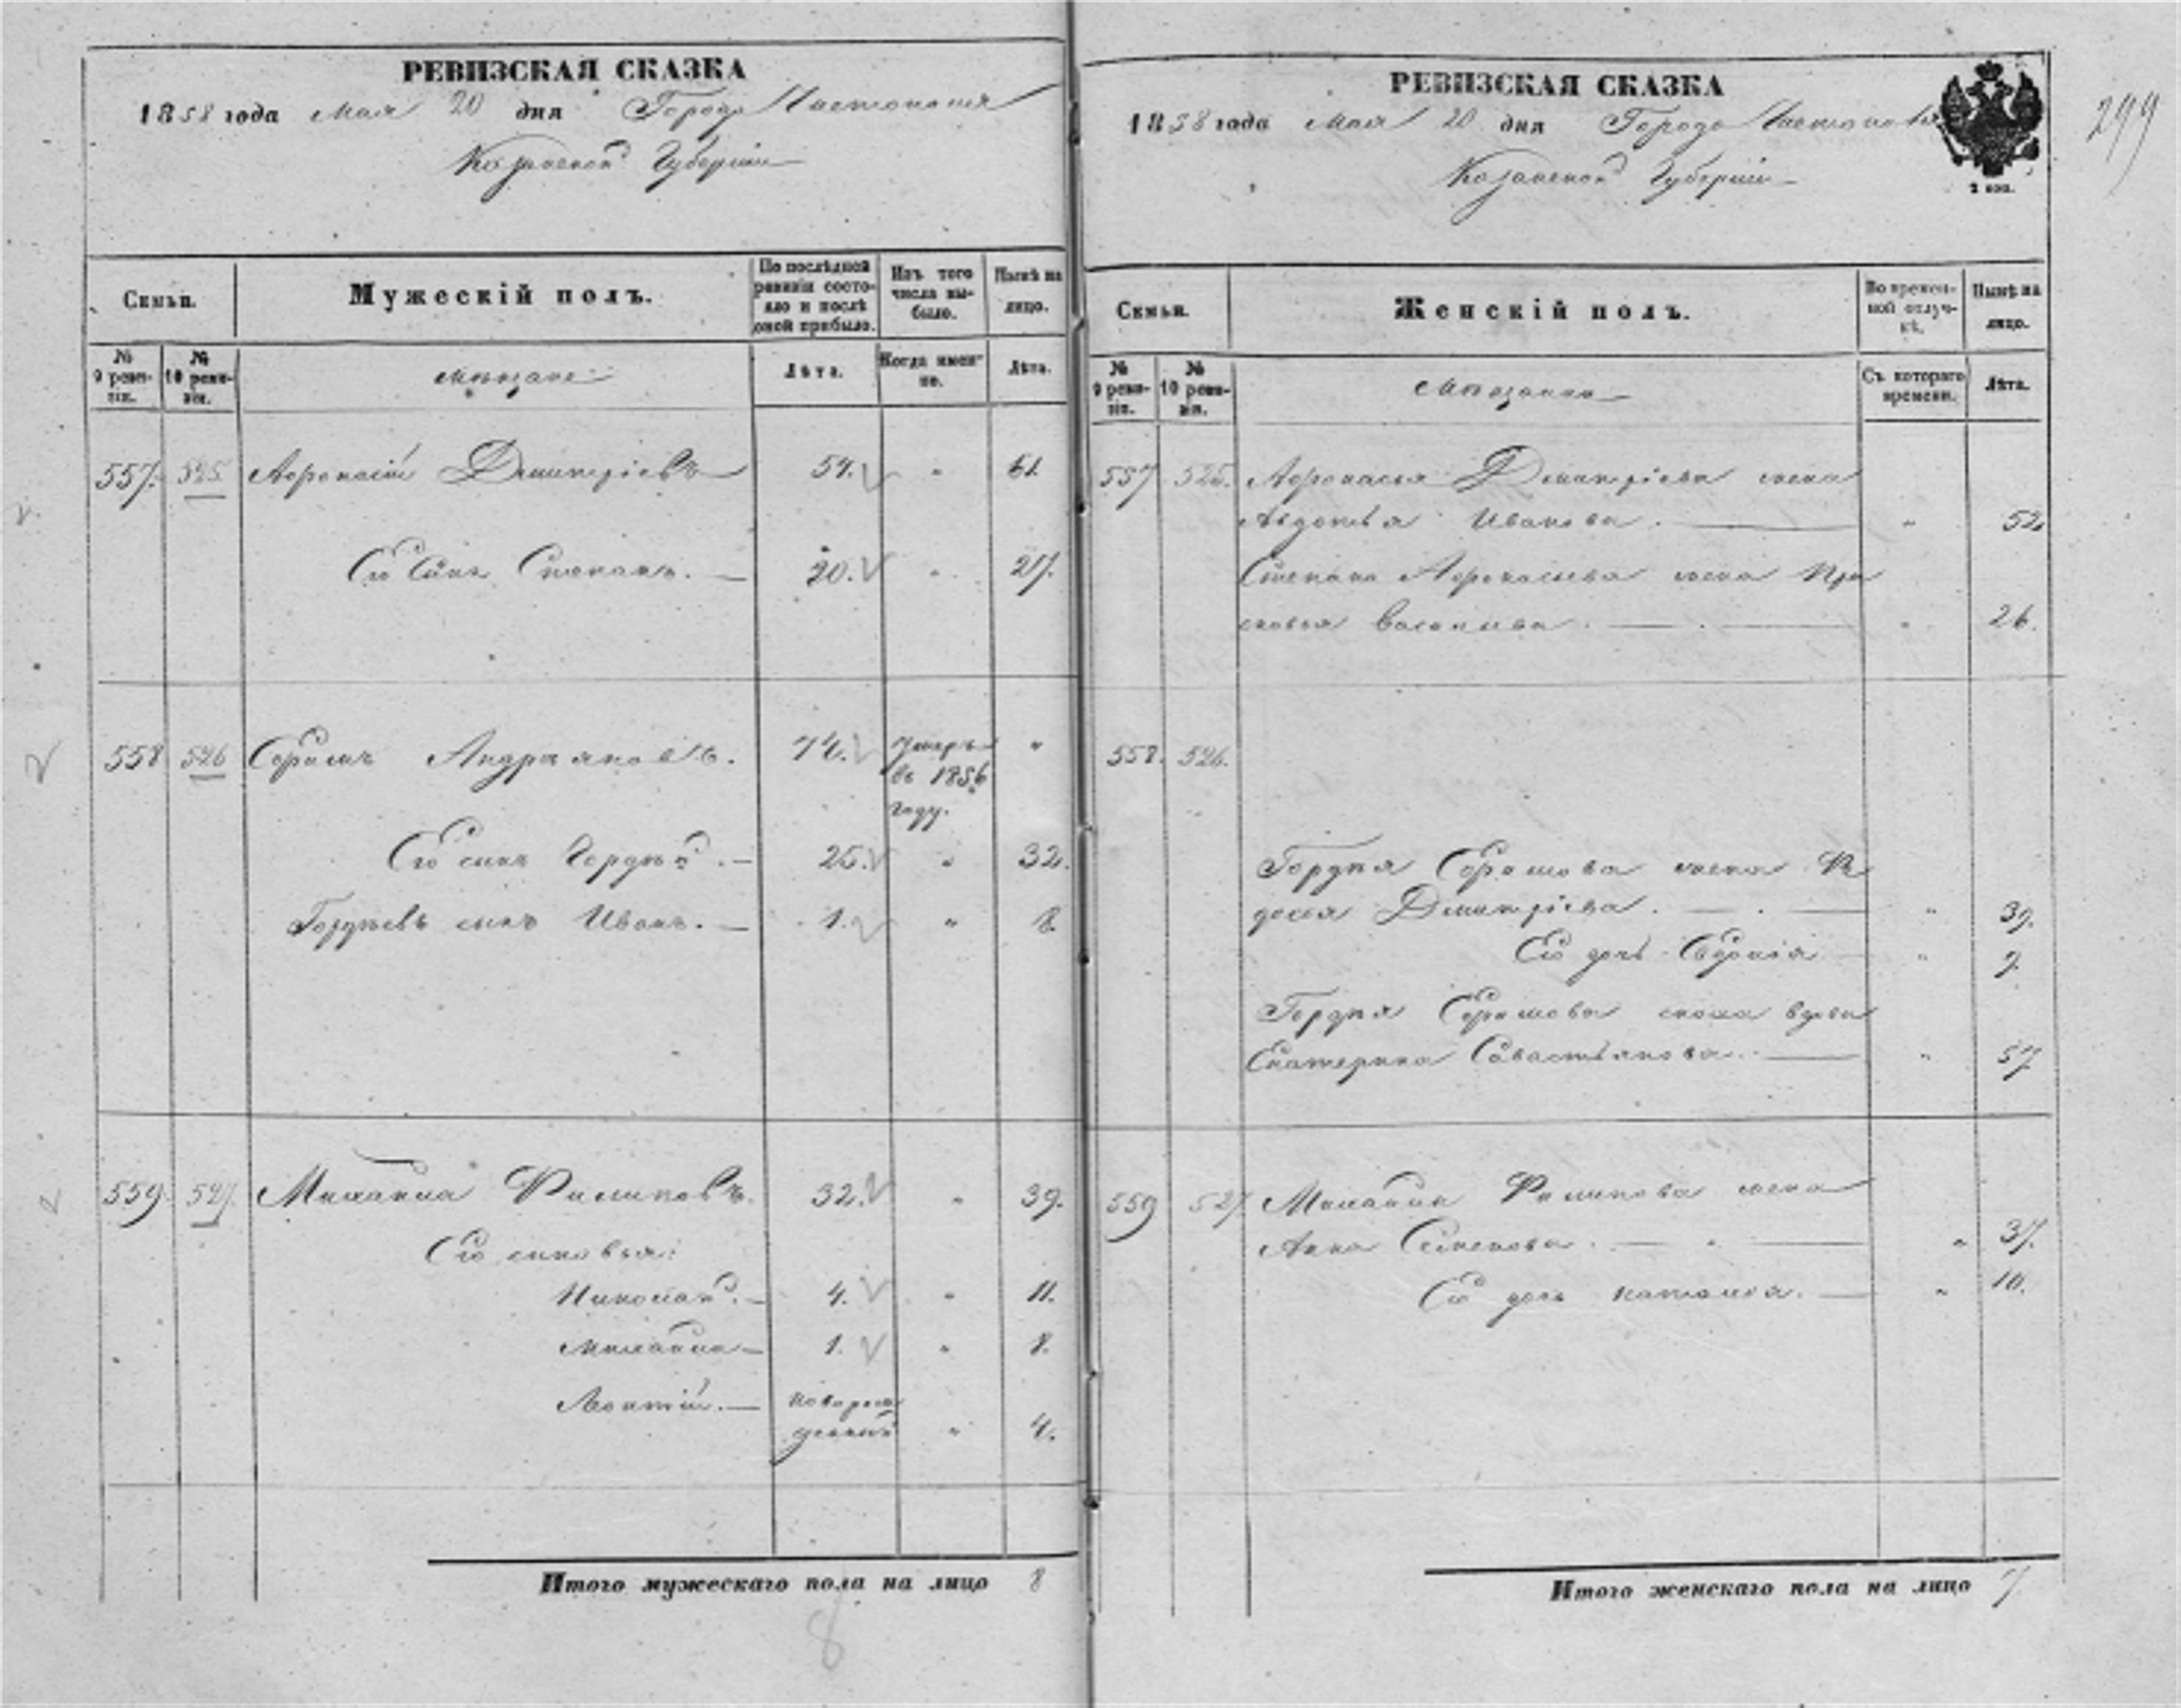 РЕВИЗСКАЯ СКАЗКА
1858 года Мая 20 дня Города Чистополя
Казанской Губерніи
Семьи.
Мужескій полъ.
По послѣдней ревизіи состояло и послѣ оной прибыло.
Изъ того числа выбыло.
Нынѣ на лицо.
№ 9 ревизіи.
№ 10 ревизіи.
мѣщане
Лѣта.
Когда именно.
Лѣта.
557. 525 Афонасій Дмитріевъ 54. " 61.
Его сынъ Степанъ. 20. " 27.
558 526 Ефимъ Андреяновъ. 74. Умеръ "
въ 1856
году.
Его сынъ Гордѣй. 25. " 32.
Гордѣевъ сынъ Иванъ. 1. " 8.
559. 527. Михайла Филиповъ. 32. " 39.
Его сыновья:
Николай. 4. " 11.
Михайла 1. " 8.
Леонтій. новорож
денный " 4.
Итого мужескаго пола на лицо 8
8
РЕВИЗСКАЯ СКАЗКА
1858 года Мая 20 дня Города Чистополя
Казанской Губерніи
2 коп.
299
Семьи.
Женскій полъ.
Во временной отлучкѣ.
Нынѣ на лицо.
№ 9 ревизіи.
№ 10 ревизіи.
мѣщанки
Съ котораго времени.
Лѣта.
557 525. Афонасья Дмитріева жена
Авдотья Иванова. " 52.
Степана Афонасьева жена Пра
сковья Васильева. " 26.
558. 526.
Гордѣя Ефимова жена Фе
досья Дмитріева. " 39.
Его дочь " 9.
Гордѣя Ефимова сноха вдова
Екатерина Савастьянова. " 57.
559 527. Михайла Филипова жена
Анна Семенова. " 37.
Его дочь Наталья. " 10.
Итого женскаго пола на лицо 7